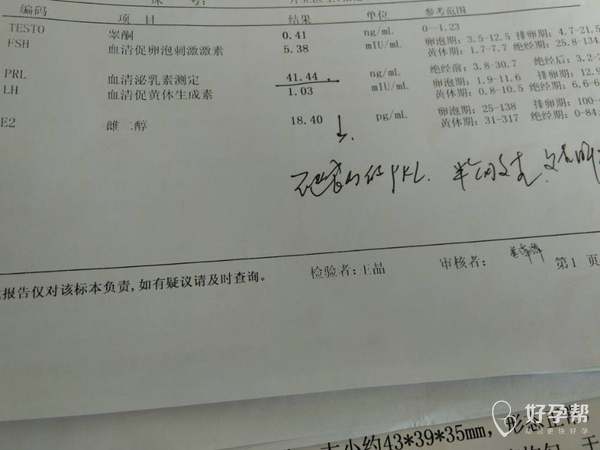 编码 项目 结果 单位 参考范围
TESTO 睾酮 0.41 ng/mL 0--1.23
FSH 血清促卵泡刺激激素 5.38 mIU/mL 卵泡期: 3.5-12.5 排卵期: 4.7-21.5
黄体期: 1.7-7.7 绝经期: 25.8-134.
PRL 血清泌乳素测定 41.44 ng/mL 绝经前: 3.8-30.7 绝经后: 3.2-
LH 血清促黄体生成素 1.03 mIU/mL 卵泡期: 1.9-11.6 排卵期: 12.9
黄体期: 0.8-10.5 绝经期: 6.6-6
E2 雌二醇 18.40 pg/mL 卵泡期: 25-138 排卵期: 100-
黄体期: 31-317 绝经期: 0-84.
PRL.
报告仅对该标本负责,如有疑议请及时查询。 检验者: 王晶 审核者: 第1页
好孕帮
大小约43*39*35mm, 形态